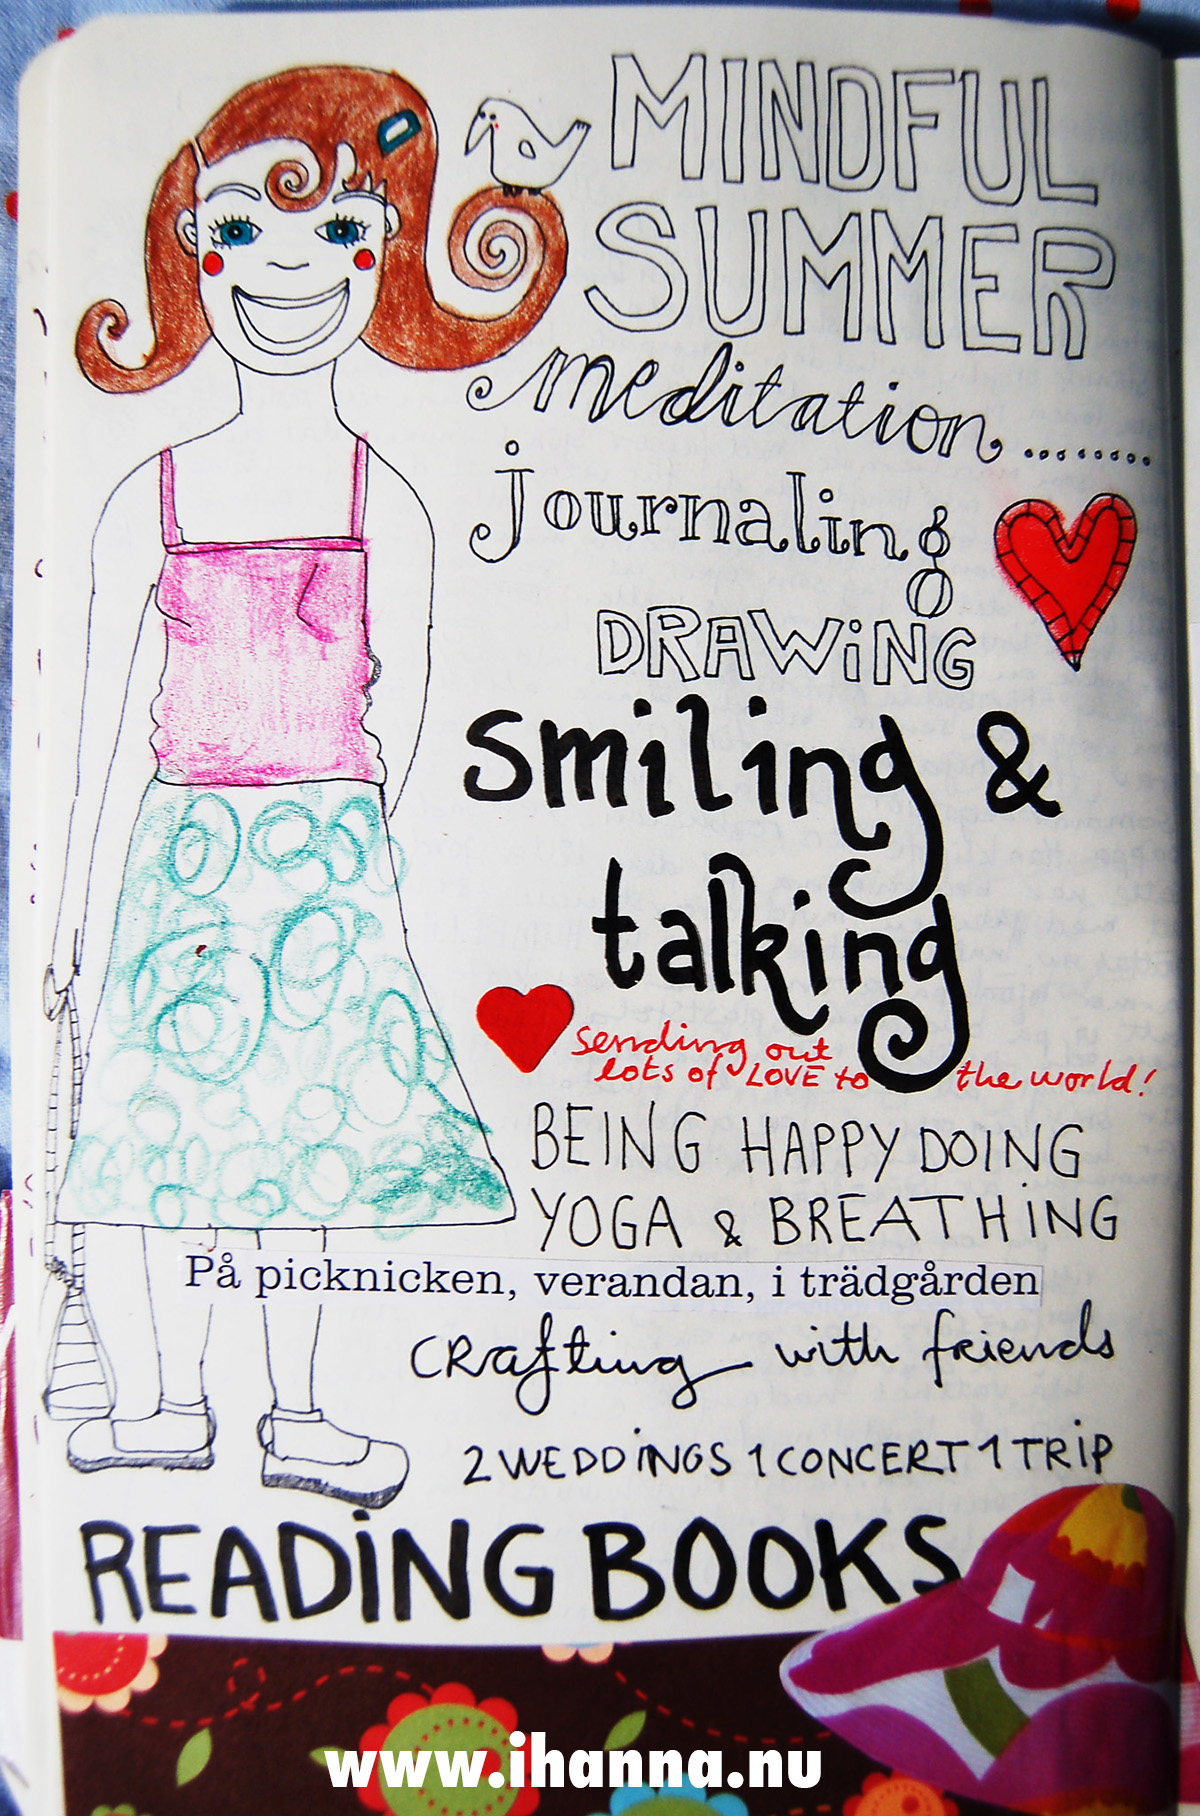 MINDFUL
SUMMER
meditation........
journaling
DRAWiNG
smiling &
talking
sending out
lots of LOVE to the world!
BEING HAPPY DOING
YOGA & BREATHiNG
På picknicken, verandan, i trädgården
CRafting with friends
2 WEDDiNGS 1 CONCERT 1 TRiP
READiNG BOOKS
www.ihanna.nu